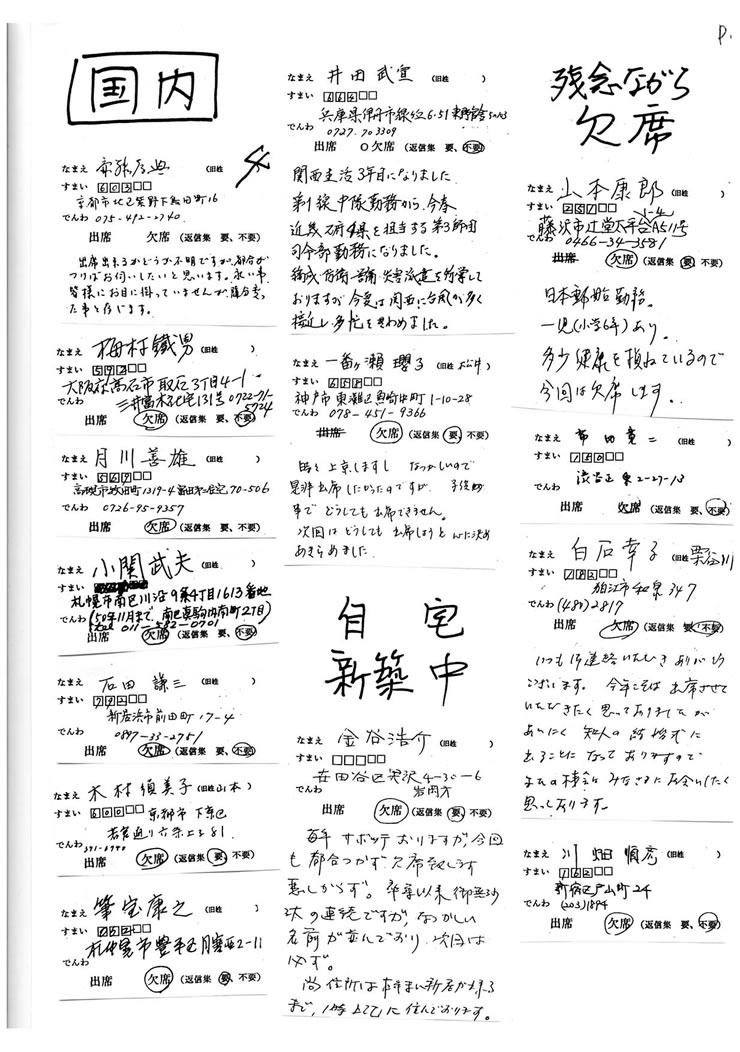 P.
国内
なまえ (旧姓 )
すまい 603□□
京都市北区紫野下 町16
でんわ 075-492-2740
出席 欠席 (返信集 要、不要)
出席出来るかどうか不明ですが、都合が
つけばお伺いしたいと思います。永い事
皆様にお目に掛っていませんが
た事と存じます。
なまえ 梅村鐵男 (旧姓 )
すまい 592□□
大阪府高石市取石3丁目4-1
三井 社宅131号 0722-71-
でんわ 5724
出席 欠席 (返信集 要、不要)
なまえ 月川善雄 (旧姓 )
すまい 567□□
高槻市 町1319-4 70-506
でんわ 0726-95-9357
出席 欠席 (返信集 要、不要)
なまえ 小関武夫 (旧姓 )
すまい
札幌市南区川沿9条4丁目1613番地
でんわ (50年11月まで、南区真駒内南町2丁目)
Tel 011-582-0701
出席 欠席 (返信集 要、不要)
なまえ 石田謙三 (旧姓 )
すまい 792□□
新居浜市前田町17-4
でんわ 0897-33-2751
出席 欠席 (返信集 要、不要)
なまえ 木村須美子 (旧姓 山本)
すまい 600□□ 京都市下京区
若宮通り六条上る81
でんわ
出席 欠席 (返信集 要、不要)
なまえ 康之 (旧姓 )
すまい 062□□
札幌市豊平区月寒西2-11
でんわ
出席 欠席 (返信集 要、不要)
なまえ 井田武宣 (旧姓 )
すまい 664□□
兵庫県伊丹市緑ヶ丘6-51
でんわ 0727-70 3309
出席 ○欠席 (返信集 要、不要)
関西生活3年目になりました
第1 中隊勤務から、今春
近畿2府4県を担当する第3師団
司令部勤務になりました。
災害派遣を
おりますが今夏は関西に台風が多く
接近し多忙を きわめました。
なまえ 一番ヶ瀬瓔子 (旧姓 )
すまい 658□□
神戸市東灘区魚崎中町1-10-28
でんわ 078-451-9366
出席 欠席 (返信集 要、不要)
時々上京しますし なつかしいので
是非出席したかったのですが、子供の
事で どうしても出席できません。
次回は どうしても 出席しようと 心に決め
あきらめました。
自宅
新築中
なまえ 金谷浩介 (旧姓 )
すまい □□□□□
世田谷区奥沢4-30-6
でんわ 岩間方
出席 欠席 (返信集 要、不要)
毎年 サボッテ おりますが、今回
も都合つかず 欠席致します
悪しからず。卒業以来御無沙
汰の連続ですが、なつかしい
名前が並んでおり、次回は
必ず。
尚住所は本年末に新居が来る
まで、1時 に住んでおります。
残念ながら
欠席
なまえ 山本康郎 (旧姓 )
すまい 251□□
1-4
藤沢市辻堂太平台A511号
でんわ 0466-34-3581
出席 欠席 (返信集 要、不要)
日本郵船勤務。
一児(小学6年)あり。
多少健康を損ねているので
今回は欠席します。
なまえ 布田寛二 (旧姓 )
すまい 150□□
渋谷区東2-27-13
でんわ
出席 欠席 (返信集 要、不要)
なまえ 白石幸子 (旧姓 栗谷川
すまい 182□□
狛江市和泉347
でんわ (489)2817
出席 欠席 (返信集 要、不要)
いつも御連絡いただき ありがとう
ございます。 今年こそは 出席させて
いただきたく 思っておりましたが
あいにく 知人の結婚式に
出ることに なっておりますので
またの機会に みなさまにお会いしたく
思っております。
なまえ 川畑順彦 (旧姓 )
すまい 162□□
新宿区戸山町24
でんわ (203)1894
出席 欠席 (返信集 要、不要)